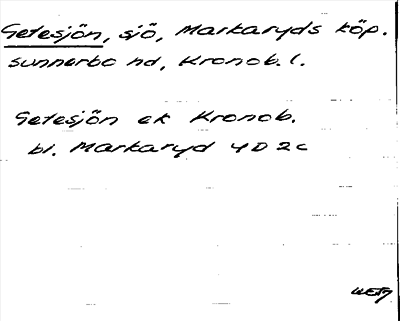 Getesjön, sjö, Markaryds köp.
sunnerbo hd, Kronob. l.
Getesjön ek Kronob.
bl. Markaryd 4D2c